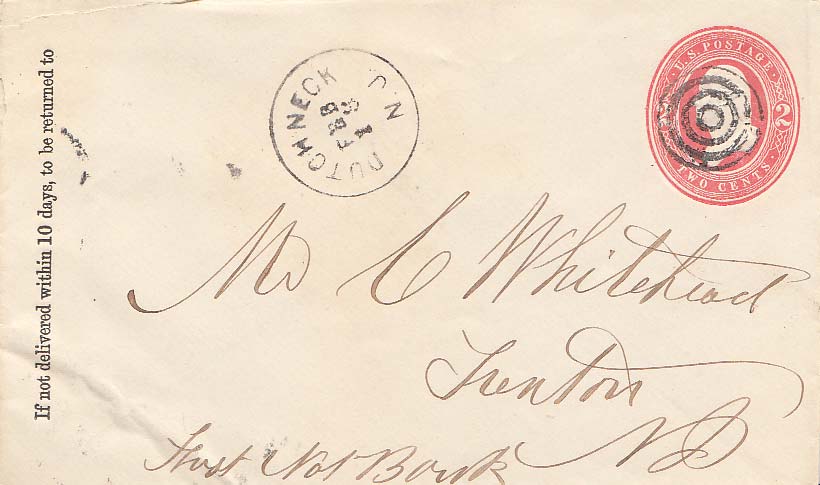 If not delivered within 10 days, to be returned to
DUTCH NECK N.J.
U.S. POSTAGE
2
TWO CENTS
Mr C Whitehead
Trenton
NJ
First Nat Bank